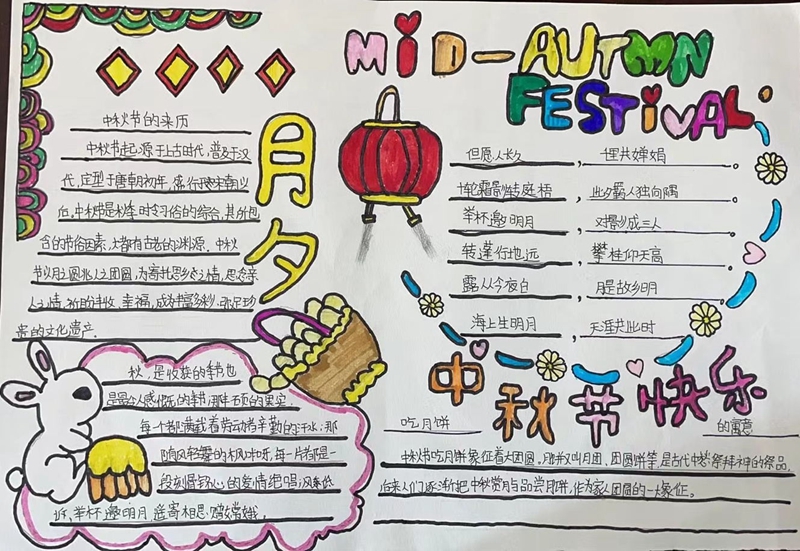 MiD-AUTMN
FESTiVAL
月夕
中秋节的来历
中秋节起源于上古时代，普及于汉
代，定型于唐朝初年，盛行于宋朝以
后，中秋节是秋季时令习俗的综合，其所包
含的节俗因素，大都有古老的渊源。中秋
节以月之圆兆人之团圆，为寄托思乡之情，思念亲
人之情，祈盼丰收、幸福，成为丰富多彩、弥足珍
贵的文化遗产。
但愿人长久，
婵娟。
一轮霜影转庭梧，此夕羁人独向隅。
举杯邀明月，对影成三人。
转蓬行地远，攀桂仰天高。
露从今夜白，月是故乡明。
海上生明月，天涯共此时
中秋节快乐
秋，是收获的季节也
是最令人感慨的季节，那丰硕的果实，
每一个都满载着劳动者辛勤的汗水；那
随风轻舞的枫叶呀，每一片都是一
段刻骨铭心的爱情绝唱；
举杯邀明月，遥寄相思，嫦娥。
吃月饼
的寓意
中秋节吃月饼象征着大团圆。月饼又叫月团、团圆饼等，是古代中秋祭拜月神的祭品，
后来人们逐渐把中秋赏月与品尝月饼，作为家人团圆的一大象征。